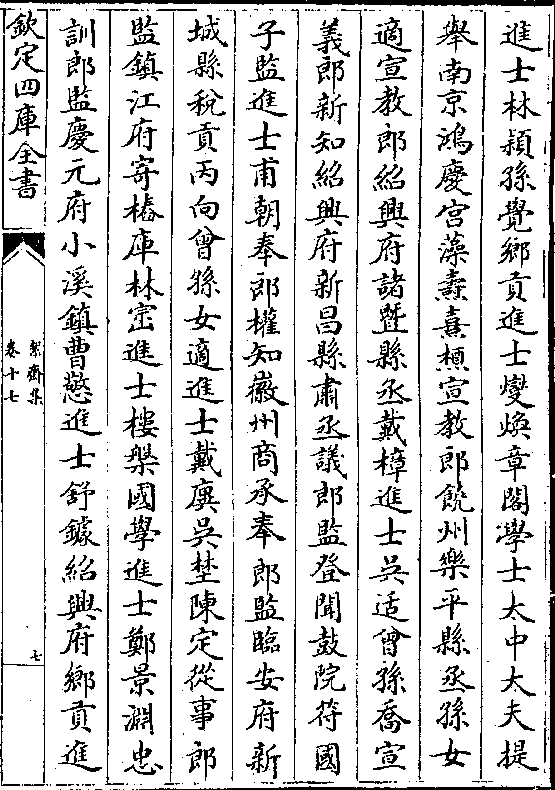 進士林潁孫覺鄉貢進士燮煥章閣學士太中大夫提
舉南京鴻慶宫藻壽熹槙宣教郎饒州樂平縣丞孫女
適宣教郎紹興府諸暨縣丞戴樟進士吳适曾孫喬宣
義郎新知紹興府新昌縣肅丞議郎監登聞鼓院符國
子監進士甫朝奉郎權知徽州商承奉郎監臨安府新
城縣稅貢丙向曾孫女適進士戴廙吳埜陳定從事郎
監鎮江府寄樁庫林宻進士樓槃國學進士鄭景淵忠
訓郎監慶元府小溪鎮曹懲進士舒鐻紹興府鄉貢進
欽定四庫全書
絜齋集
卷十七
七